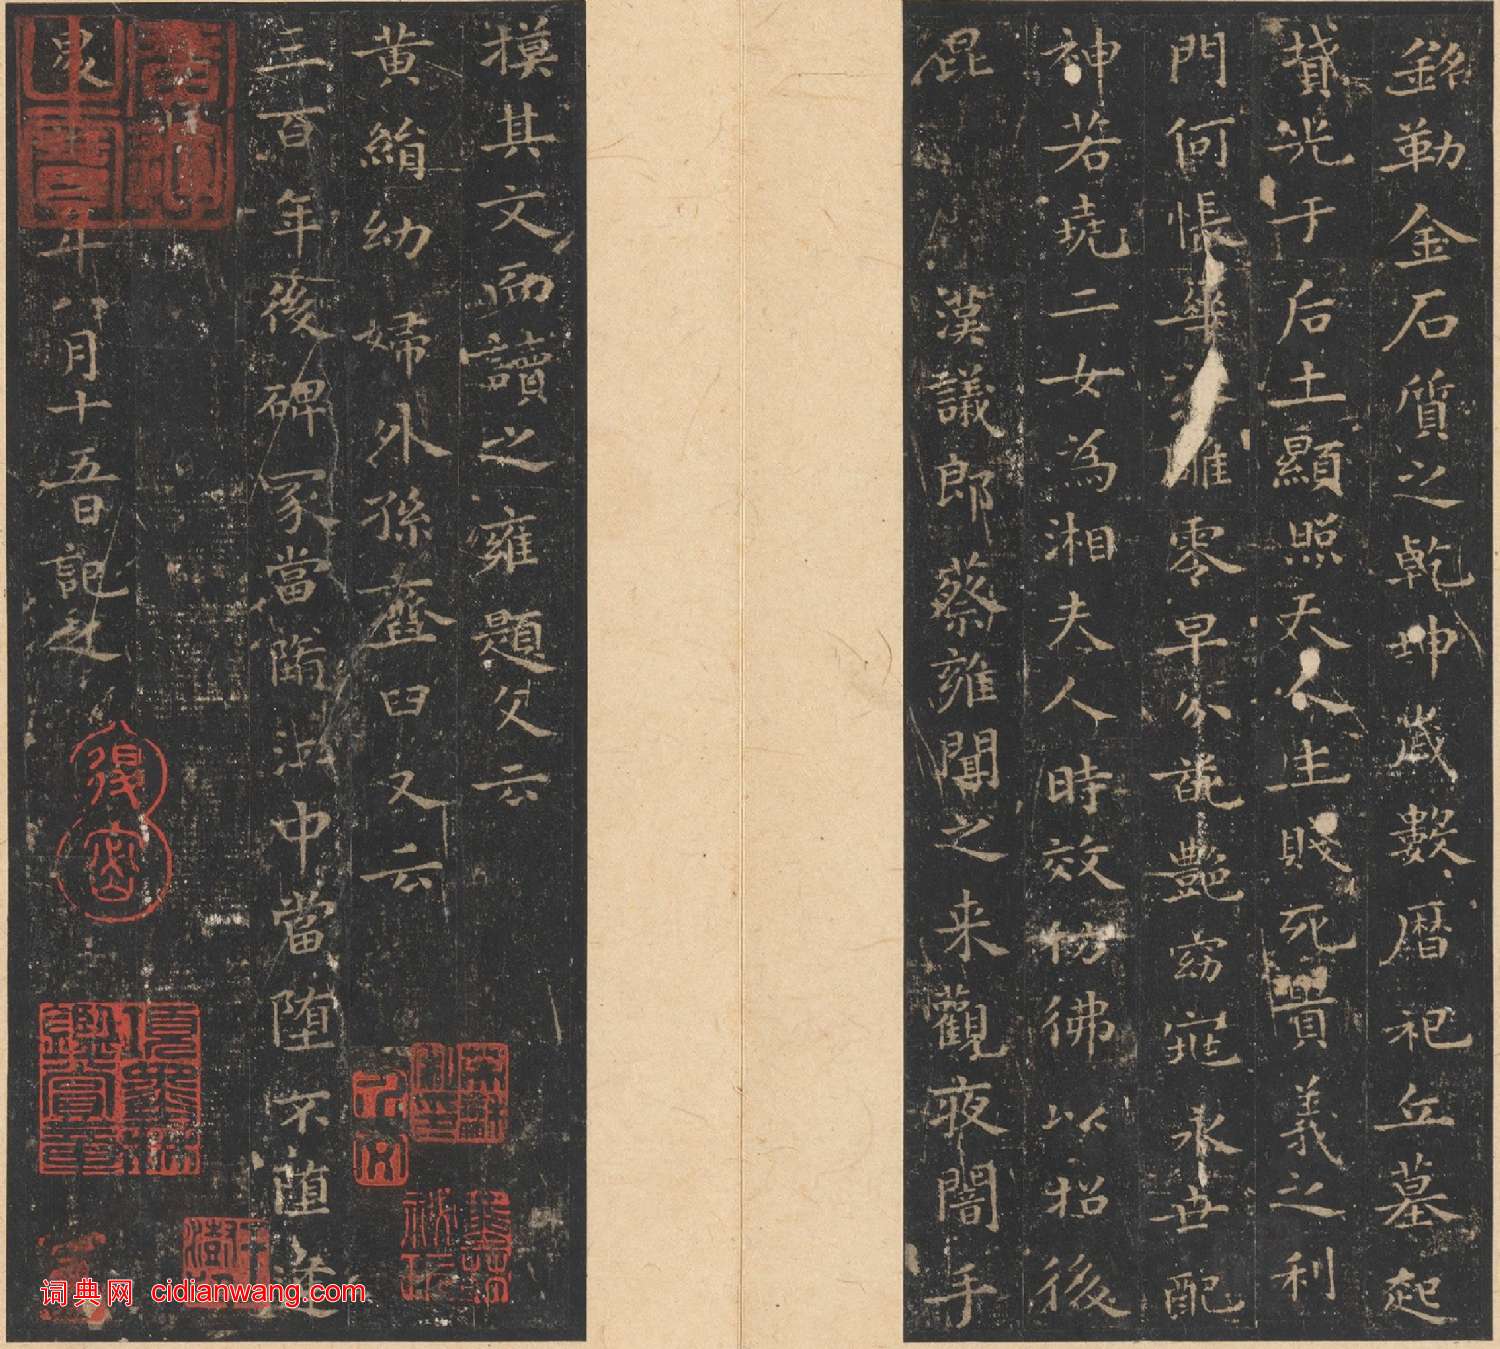 銘勒金石質之乾坤歲數曆祀丘墓起
墳光于后土顯照天人生賤死貴義之利
門何悵華落雕零早分葩艷窈窕永世配
神若堯二女為湘夫人時效彷彿以招後
昆 漢議郎蔡雍聞之来觀夜闇手
摸其文而讀之雍題文云
黄絹幼婦外孫韲臼又云
三百年後碑冢當墮江中當堕不墮逢
年八月十五日記之
词典网 cidianwang.com